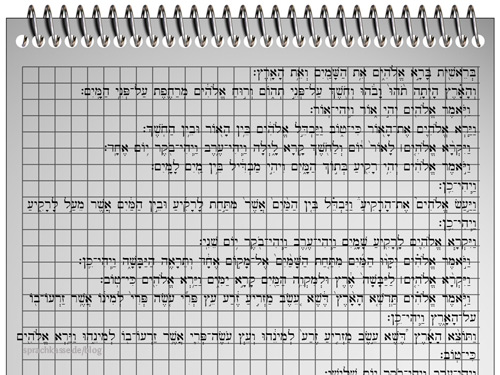 בְּרֵאשִׁית בָּרָא אֱלֹהִים אֵת הַשָּׁמַיִם וְאֵת הָאָרֶץ׃
וְהָאָרֶץ הָיְתָה תֹהוּ וָבֹהוּ וְחֹשֶׁךְ עַל־פְּנֵי תְהוֹם וְרוּחַ אֱלֹהִים מְרַחֶפֶת עַל־פְּנֵי הַמָּיִם׃
וַיֹּאמֶר אֱלֹהִים יְהִי אוֹר וַיְהִי־אוֹר׃
וַיַּרְא אֱלֹהִים אֶת־הָאוֹר כִּי־טוֹב וַיַּבְדֵּל אֱלֹהִים בֵּין הָאוֹר וּבֵין הַחֹשֶׁךְ׃
וַיִּקְרָא אֱלֹהִים׀ לָאוֹר יוֹם וְלַחֹשֶׁךְ קָרָא לָיְלָה וַיְהִי־עֶרֶב וַיְהִי־בֹקֶר יוֹם אֶחָד׃
וַיֹּאמֶר אֱלֹהִים יְהִי רָקִיעַ בְּתוֹךְ הַמָּיִם וִיהִי מַבְדִּיל בֵּין מַיִם לָמָיִם׃
וַיְהִי־כֵן׃
וַיַּעַשׂ אֱלֹהִים אֶת־הָרָקִיעַ וַיַּבְדֵּל בֵּין הַמַּיִם אֲשֶׁר מִתַּחַת לָרָקִיעַ וּבֵין הַמַּיִם אֲשֶׁר מֵעַל לָרָקִיעַ
וַיְהִי־כֵן׃
וַיִּקְרָא אֱלֹהִים לָרָקִיעַ שָׁמָיִם וַיְהִי־עֶרֶב וַיְהִי־בֹקֶר יוֹם שֵׁנִי׃
וַיֹּאמֶר אֱלֹהִים יִקָּווּ הַמַּיִם מִתַּחַת הַשָּׁמַיִם אֶל־מָקוֹם אֶחָד וְתֵרָאֶה הַיַּבָּשָׁה וַיְהִי־כֵן׃
וַיִּקְרָא אֱלֹהִים׀ לַיַּבָּשָׁה אֶרֶץ וּלְמִקְוֵה הַמַּיִם קָרָא יַמִּים וַיַּרְא אֱלֹהִים כִּי־טוֹב׃
וַיֹּאמֶר אֱלֹהִים תַּדְשֵׁא הָאָרֶץ דֶּשֶׁא עֵשֶׂב מַזְרִיעַ זֶרַע עֵץ פְּרִי עֹשֶׂה פְּרִי לְמִינוֹ אֲשֶׁר זַרְעוֹ־בוֹ
עַל־הָאָרֶץ וַיְהִי־כֵן׃
וַתּוֹצֵא הָאָרֶץ דֶּשֶׁא עֵשֶׂב מַזְרִיעַ זֶרַע לְמִינֵהוּ וְעֵץ עֹשֶׂה־פְּרִי אֲשֶׁר זַרְעוֹ־בוֹ לְמִינֵהוּ וַיַּרְא אֱלֹהִים
sprachkasse.de/blog
כִּי־טוֹב׃